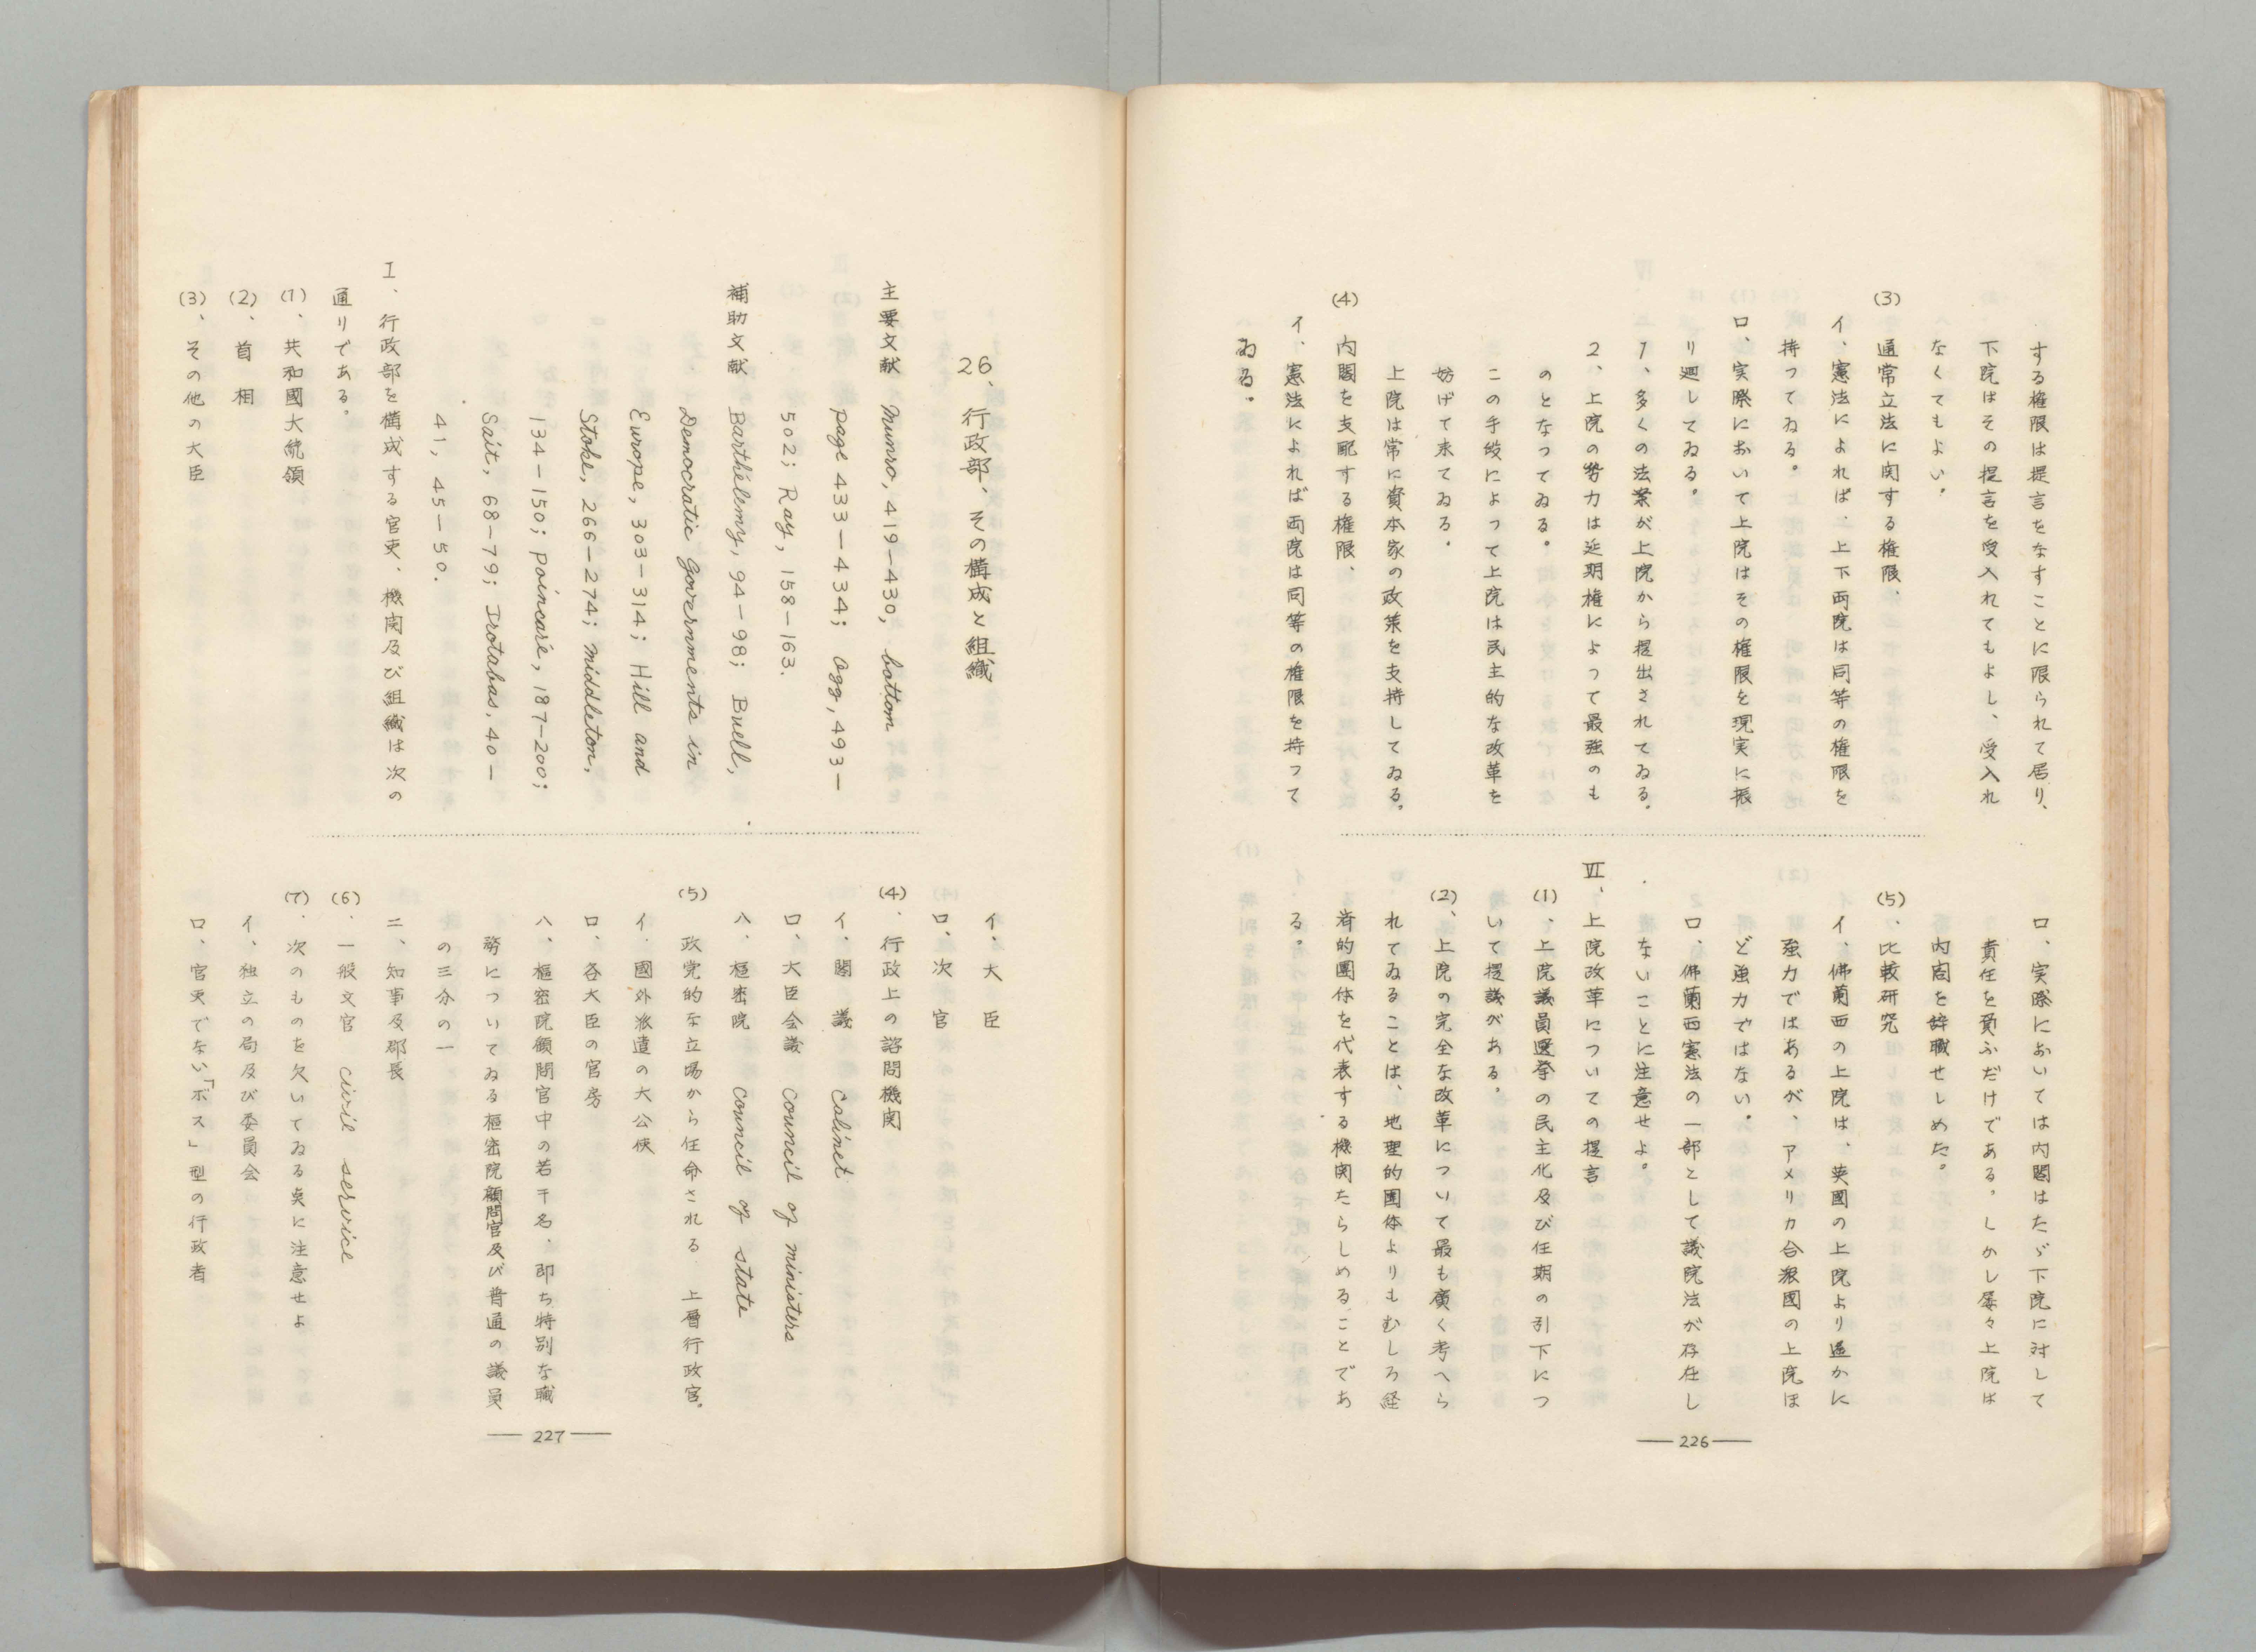 する権限は提言をなすことに限られて居り、
下院はその提言を受入れてもよし、受入れ
なくてもよい。
(3) 通常立法に関する権限、
イ、憲法によれば、上下両院は同等の権限を
持つてゐる。
ロ、実際において上院はその権限を現実に振
り廻してゐる。
1、多くの法案が上院から提出されてゐる。
2、上院の勢力は延期権によつて最強のも
のとなつてゐる。
この手段によつて上院は民主的な改革を
妨げて来てゐる。
上院は常に資本家の政策を支持してゐる。
(4) 内閣を支配する権限、
イ、憲法によれば両院は同等の権限を持つて
ゐる。
ロ、実際においては内閣はたゞ下院に対して
責任を負ふだけである。しかし屡々上院は
内閣を辞職せしめた。
(5)、比較研究
イ、佛蘭西の上院は、英國の上院より遥かに
強力ではあるが、アメリカ合衆國の上院ほ
ど強力ではない。
ロ、佛蘭西憲法の一部として議院法が存在し
ないことに注意せよ。
Ⅵ、上院改革についての提言
(1)、上院議員選挙の民主化及び任期の引下につ
いて提議がある。
(2)、上院の完全な改革について最も廣く考へら
れてゐることは、地理的團体よりもむしろ経
済的團体を代表する機関たらしめることであ
る。
—226—
26、行政部、その構成と組織
主要文献 Munro, 419—430, bottom
page 433—434; Ogg, 493—
502; Ray, 158—163.
補助文献 Barthélemy, 94—98; Buell,
Democratic Governments in
Europe, 303—314; Hill and
Stoke, 266—274; Middleton,
134—150; Poincaré, 187—200;
Sait, 68—79; Trotabas, 40—
41, 45—50.
I、行政部を構成する官吏、機関及び組織は次の
通りである。
(1)、共和國大統領
(2)、首 相
(3)、その他の大臣
イ、大 臣
ロ、次 官
(4)、行政上の諮問機関
イ、閣 議 Cabinet
ロ、大臣会議 Council of ministers
ハ、樞密院 Council of state
(5) 政党的な立場から任命される 上層行政官。
イ、國外派遣の大公使
ロ、各大臣の官房
ハ、樞密院顧問官中の若干名、即ち特別な職
務についてゐる樞密院顧問官及び普通の議員
の三分の一
ニ、知事及郡長
(6)、一般文官 civil service
(7)、次のものを欠いてゐる奌に注意せよ
イ、独立の局及び委員会
ロ、官吏でない「ボス」型の行政者
—227—